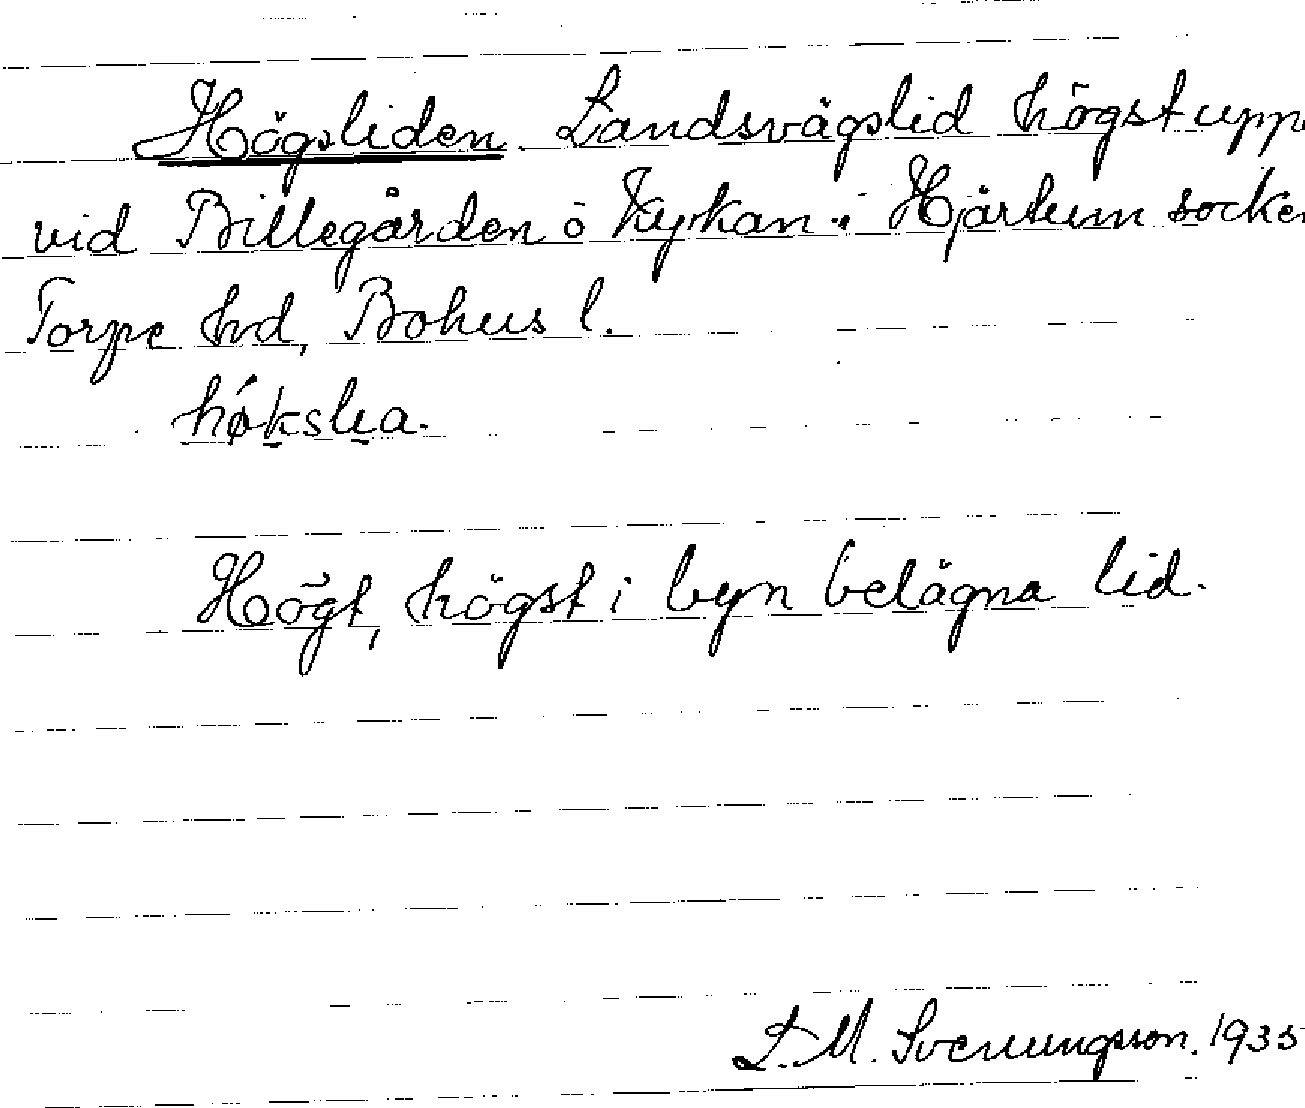 Högsliden. Landsvägslid högst uppe
vid Billegården ö kyrkan i Hjärtum socken
Torpe hd, Bohus l.
hǿkslıa.
Högt, högst i byn belägna lid.
L. M. Svenungsson. 1935